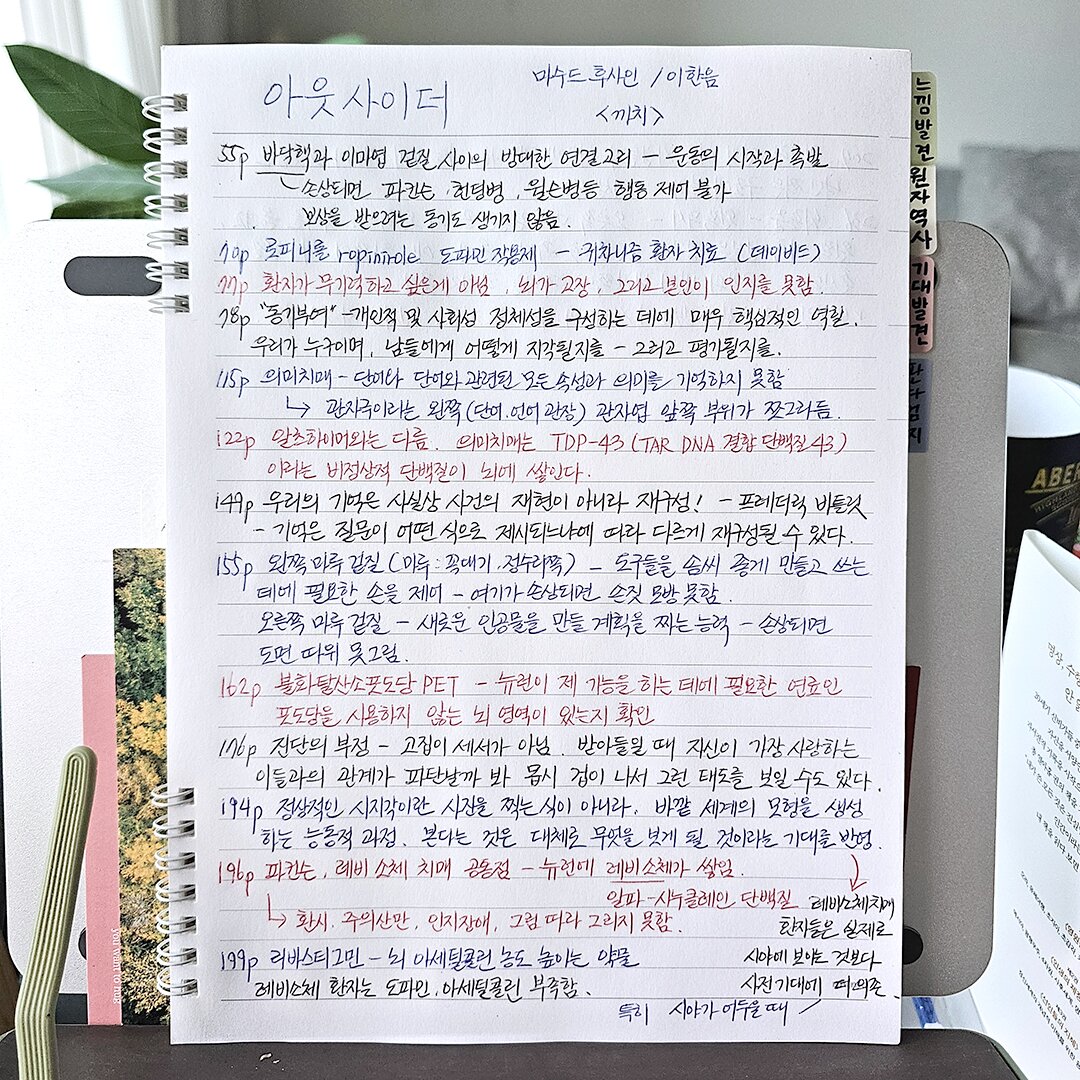 아웃사이더
마수드 후사인 / 이한음
<까치>
55p 바닥핵과 이마엽 겉질 사이의 방대한 연결고리 - 운동의 시작과 촉발
손상되면 파킨슨, 헌팅병, 윌슨병등 행동 제어 불가
보상을 받으려는 동기도 생기지 않음.
70p 로피니롤 ropinirole 도파민 작용제 - 귀차니즘 환자 치료 (데이비드)
77p 환자가 무기력하고 싶은게 아님, 뇌가 고장, 그리고 본인이 인지를 못함.
78p "동기부여" - 개인적 및 사회성 정체성을 구성하는 데에 매우 핵심적인 역할.
우리가 누구이며, 남들에게 어떻게 지각될지를 - 그리고 평가될지를.
115p 의미치매 - 단어나 단어와 관련된 모든 속성과 의미를 기억하지 못함
↳ 관자극이라는 왼쪽(단어.언어 관장) 관자엽 앞쪽 부위가 쪼그라듦.
122p 알츠하이머와는 다름. 의미치매는 TDP-43 (TAR DNA 결합 단백질43)
이라는 비정상적 단백질이 뇌에 쌓인다.
149p 우리의 기억은 사실상 사건의 재현이 아니라 재구성! - 프레더릭 바틀릿
- 기억은 질문이 어떤 식으로 제시되느냐에 따라 다르게 재구성될 수 있다.
155p 왼쪽 마루 겉질 (마루 : 꼭대기.정수리쪽) - 도구들을 솜씨 좋게 만들고 쓰는
데에 필요한 손을 제어 - 여기가 손상되면 손짓 모방 못함.
오른쪽 마루 겉질 - 새로운 인공물을 만들 계획을 짜는 능력 - 손상되면
도면 따위 못그림.
162p 불화탈산소포도당 PET - 뉴런이 제 기능을 하는 데에 필요한 연료인
포도당을 사용하지 않는 뇌 영역이 있는지 확인
176p 진단의 부정 - 고집이 세서가 아님. 받아들일 때 자신이 가장 사랑하는
이들과의 관계가 파탄날까 봐 몹시 겁이 나서 그런 태도를 보일 수도 있다.
194p 정상적인 시지각이란 사진을 찍는 식이 아니라. 바깥 세계의 모형을 생성
하는 능동적 과정. 본다는 것은 대체로 무엇을 보게 될 것이라는 기대를 반영.
196p 파킨슨, 레비 소체 치매 공통점 - 뉴런에 레비소체가 쌓임.
알파-시누클레인 단백질
↳ 환시. 주의산만, 인지장애, 그림 따라 그리지 못함.
레비소체치매
환자들은 실제로
시야에 보이는 것보다
사전기대에 더 의존.
특히 시야가 어두울 때
199p 리바스티그민 - 뇌 아세틸콜린 농도 높이는 약물
레비소체 환자는 도파민, 아세틸콜린 부족함.
느낌발견
원자역사
기대발견
판다엄지
ABE
you want to hide
명상, 수